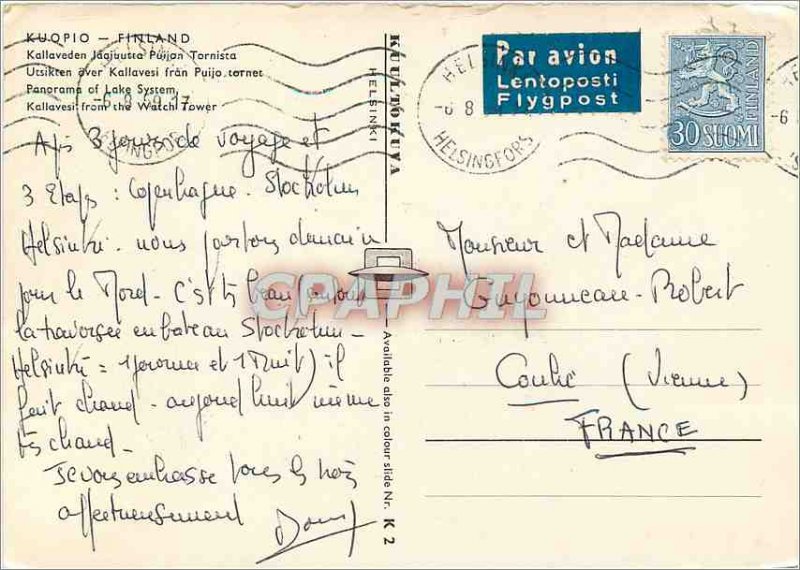 KUOPIO — FINLAND
Kallaveden laajuutta Puijon Tornista
Utsikten över Kallavesi från Puijo tornet
Panorama of Lake System,
Kallavesi from the Watch Tower
Après 3 jours de voyage et
3 Etapes : Copenhague. Stockholm
Helsinki. nous partons demain
pour le Nord. C'est très beau
la traversée en bateau Stockholm-
Helsinki = 1 journée et 1 Nuit) il
fait chaud. aujourd'hui même
très chaud.
Je vous embrasse tous les
affectueusement
KUULTOKUVA
HELSINKI
Available also in colour slide Nr. K 2
CPAPHIL
Par avion
Lentoposti
Flygpost
HELSINGFORS
-6 8
FINLAND
30 SUOMI
Monsieur et Madame
Guyonneau-Robert
Couhé (Vienne)
FRANCE